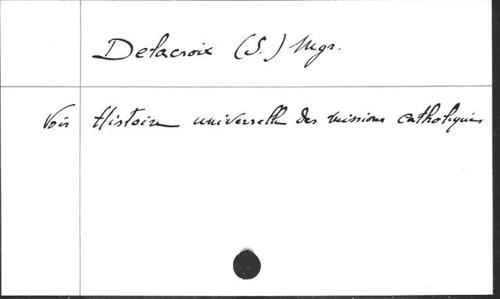 Delacroix (S.) Mgr.
Voir Histoire universelle des missions catholiques